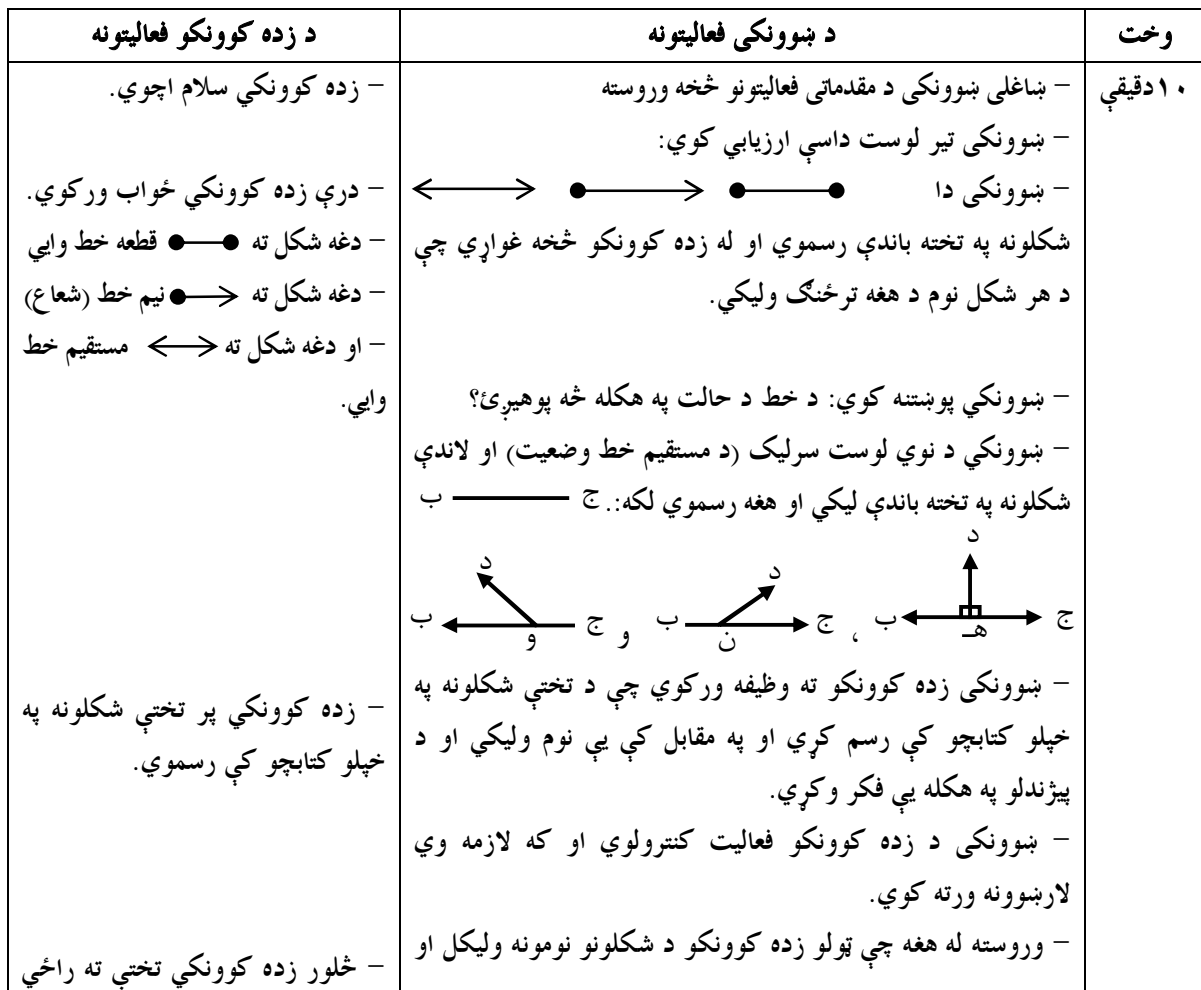 وخت
د ښوونکی فعالیتونه
د زده کوونکو فعالیتونه
۱۰دقیقې
– ښاغلی ښوونکی د مقدماتی فعالیتونو څخه وروسته
– ښوونکی تیر لوست داسې ارزیابي کوي:
– ښوونکی دا
شکلونه په تخته باندې رسموي او له زده کوونکو څخه غواړي چې
د هر شکل نوم د هغه ترڅنګ ولیکي.
– ښوونکي پوښتنه کوي: د خط د حالت په هکله څه پوهیږئ؟
– ښوونکي د نوي لوست سرلیک (د مستقیم خط وضعیت) او لاندې
شکلونه په تخته باندې لیکي او هغه رسموي لکه:. ج ب
د
ج هـ ب ، د ج ن ب و د ج و ب
– ښوونکی زده کوونکو ته وظیفه ورکوي چې د تختې شکلونه په
خپلو کتابچو کې رسم کړي او په مقابل کې یې نوم ولیکي او د
پیژندلو په هکله یې فکر وکړي.
– ښوونکی د زده کوونکو فعالیت کنترولوي او که لازمه وي
لارښوونه ورته کوي.
– وروسته له هغه چې ټولو زده کوونکو د شکلونو نومونه ولیکل او
– زده کوونکي سلام اچوي.
– درې زده کوونکي ځواب ورکوي.
– دغه شکل ته قطعه خط وایي
– دغه شکل ته نیم خط (شعاع)
– او دغه شکل ته مستقیم خط
وایي.
– زده کوونکي پر تختې شکلونه په
خپلو کتابچو کې رسموي.
– څلور زده کوونکي تختې ته راځي